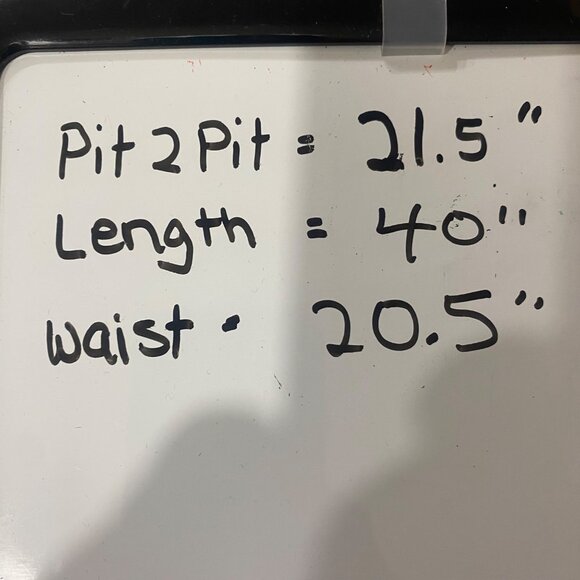 Pit 2 Pit = 21.5"
Length = 40"
Waist - 20.5"